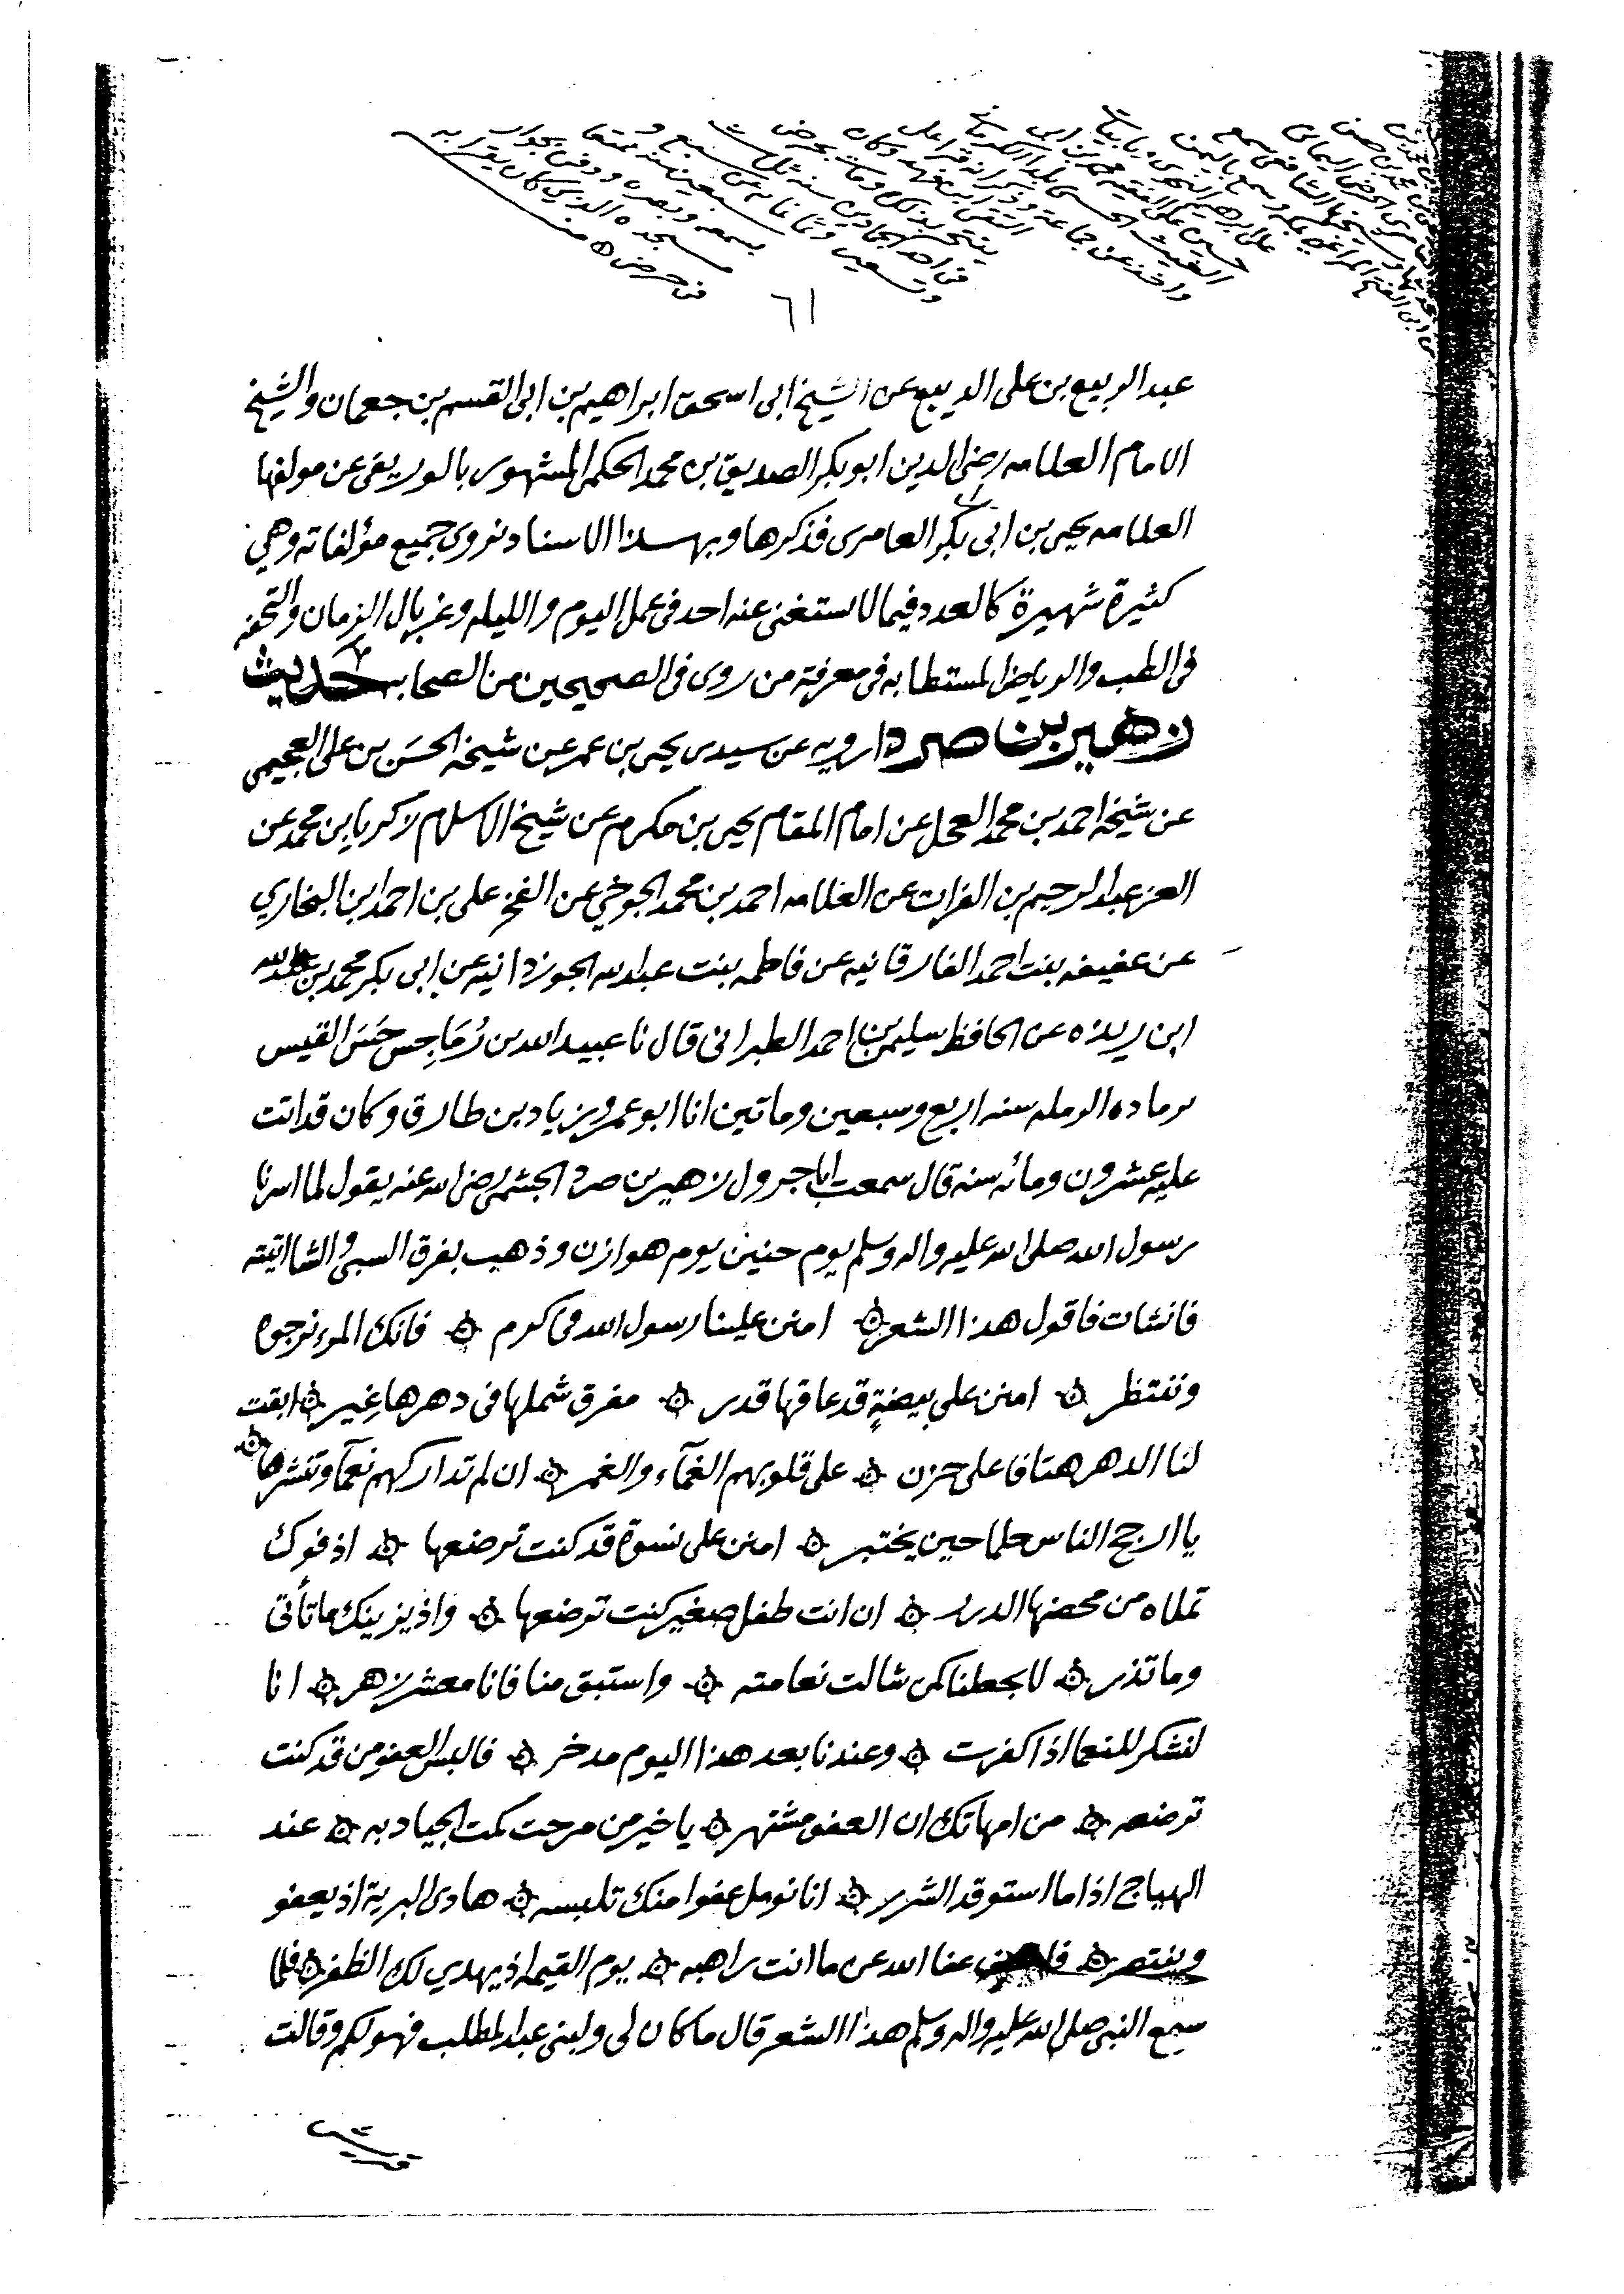 في حرض
مسجده الذي كان يقرا به
بسمعه وبصره ودفن بجوار
٦١
عبد الربيع بن على الديبع عن الشيخ ابى اسحق ابراهيم بن ابى القسم بن جعمان والشيخ
الامام العلامه رضى الدين ابو بكر الصديق بن محمد الحكمى المشهور بالوريفى عن مولفها
العلامه يحيى بن ابى بكر العامرى فذكرها وبهذا الاسناد نروى جميع مؤلفاته وهي
كثيرة شهيرة كالعدد فيما لا يستغنى عنه احد فى عمل اليوم والليله وغربال الزمان والتحفه
فى الطب والرياض المستطابه فى معرفة من روى فى الصحيحين من الصحابه حديث
زهير بن صرد ارويه عن سيدى يحيى بن عمر عن شيخه الحسَن بن على العجيمى
عن شيخه احمد بن محمد العجل عن امام المقام يحيى بن مكرم عن شيخ الاسلام زكريا بن محمد عن
العز عبد الرحيم بن الفرات عن العلامه احمد بن محمد الجوخي عن الفخر على بن احمد ابن البخاري
عن عفيفه بنت احمد الفارقانيه عن فاطمه بنت عبد الله الجوزدانيه عن ابى بكر محمد بن عبد الله
ابن ريذه عن الحافظ سليمن بن احمد الطبرانى قال نا عبيد الله بن رُمَاحِس القيس
برماده الرمله سنه اربع وسبعين وماتين انا ابو عمرو زياد بن طارق وكان قد اتت
عليه عشرون ومائه سنه قال سمعت ابا جرول زهير بن صرد الجشمى رضى الله عنه يقول لما اسرنا
رسول الله صلى الله عليه واله وسلم يوم حنين يوم هوازن وذهب يفرق السبى والشا اتيته
فانشات فاقول هذا الشعر ۞ امنن علينا رسول الله فى كرم ۞ فانك المرء نرجوه
وننتظر ۞ امنن على بيضةٍ قد عاقها قدر ۞ مفرق شملها فى دهرها غِير ۞ ابقت
لنا الدهر هتافا على حزن ۞ على قلوبهم الغمآء والغمر ۞ ان لم تداركهم نعمآ وتنشرها ۞
يا ارجح الناس حلما حين يختبر ۞ امنن على نسوة قد كنت ترضعها ۞ اذ فوك
تملاه من محضها الدرر ۞ ان انت طفل صغير كنت ترضعها ۞ واذ يزينك ما تأتى
وما تذر ۞ لا تجعلنا كمن شالت نعامته ۞ واستبق منا فانا معشر زهر ۞ انا
لنشكر للنعما اذا كفرت ۞ وعندنا بعد هذا اليوم مدخر ۞ فالبس العفو من قد كنت
ترضعه ۞ من امهاتك ان العفو مشتهر ۞ يا خير من مرحت كمت الجياد به ۞ عند
الهياج اذا ما استوقد الشرر ۞ انا نومل عفوا منك تلبسه ۞ هادى البرية اذ يعفو
وينتصر ۞ عفا الله عن ما انت راهبه ۞ يوم القيمه اذ يهدي لك الظفر ۞ فلما
سمع النبى صلى الله عليه واله وسلم هذا الشعر قال ما كان لى ولبنى عبد المطلب فهو لكم وقالت
قريش